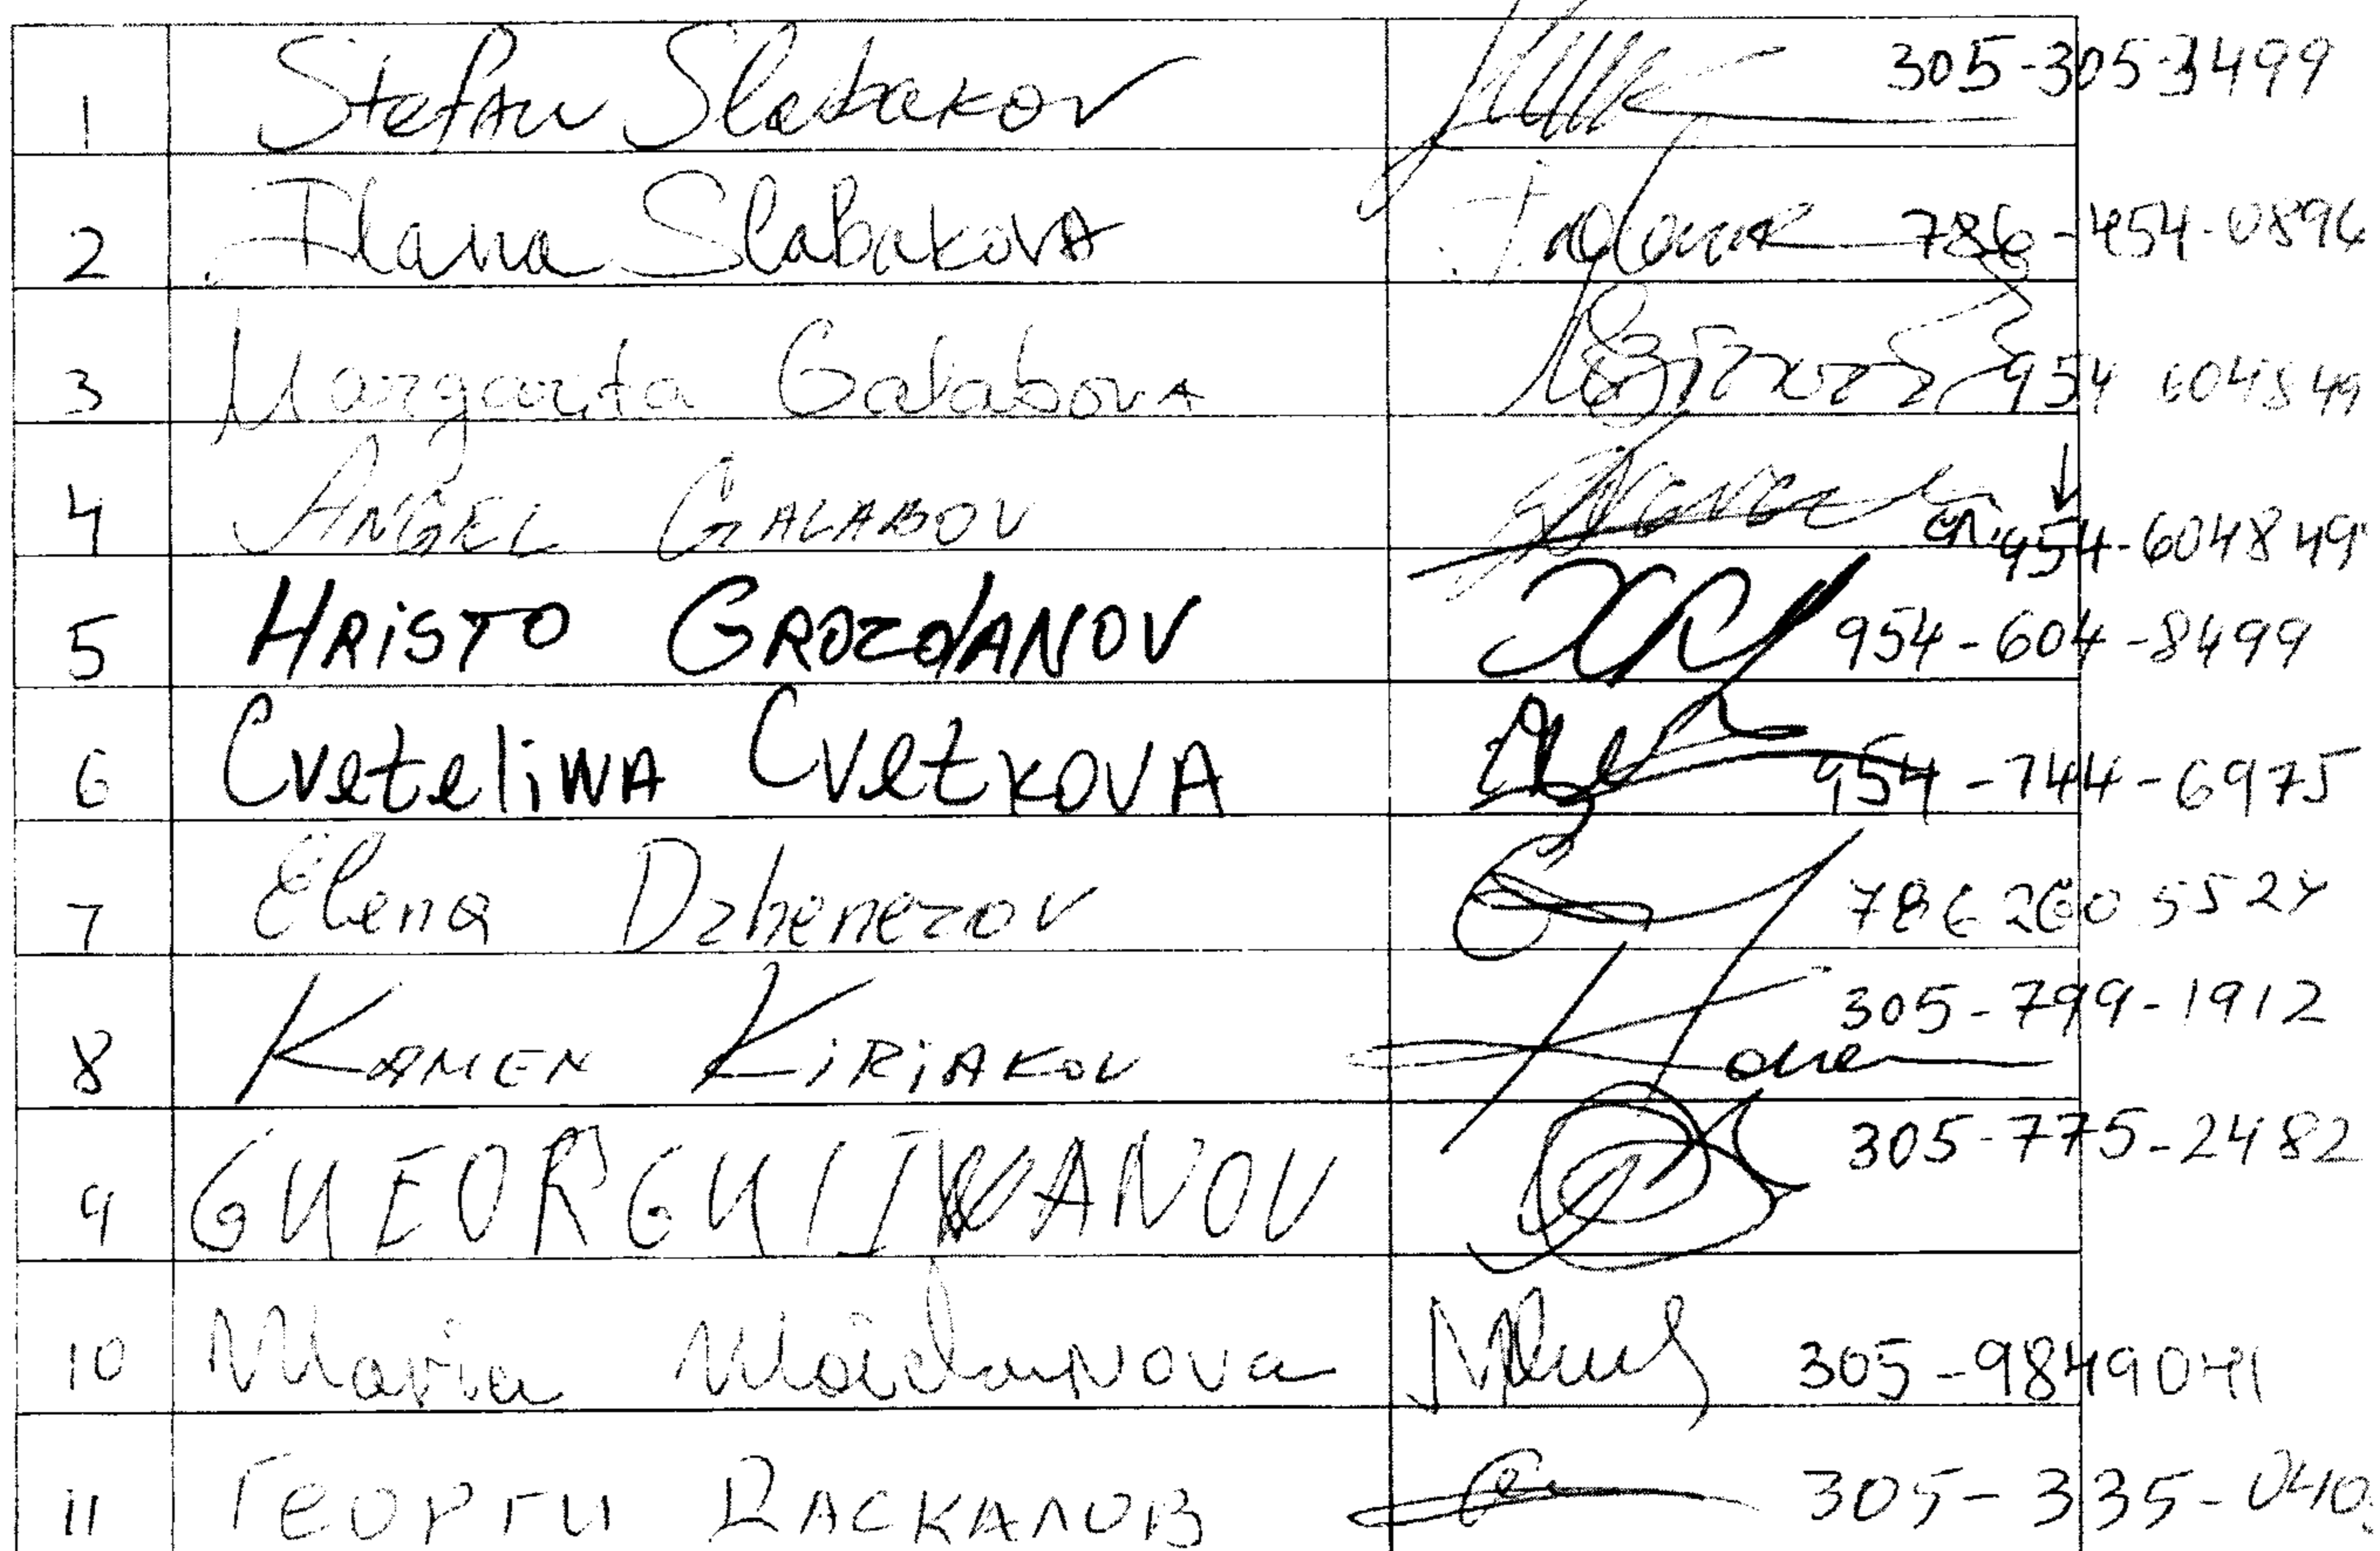 1 Stefan Slabakov 305-305-3499
2 Ilana Slabakova 786-454-0896
3 Margarita Galabova 954 6048499
4 ANGEL GALABOV 954-6048499
5 HRiSTO GROZdANOV 954-604-8499
6 CveteliNA CvetkOVA 954-744-6975
7 Elena Dzhenezov 786 260 5527
8 KAMEN KiRiAKOV 305-799-1912
9 GUEORGUI IVANOV 305-775-2482
10 Maria MaidaNova 305-9849041
11 ГЕОРГИ ДАСКАЛОВ 305-335-040